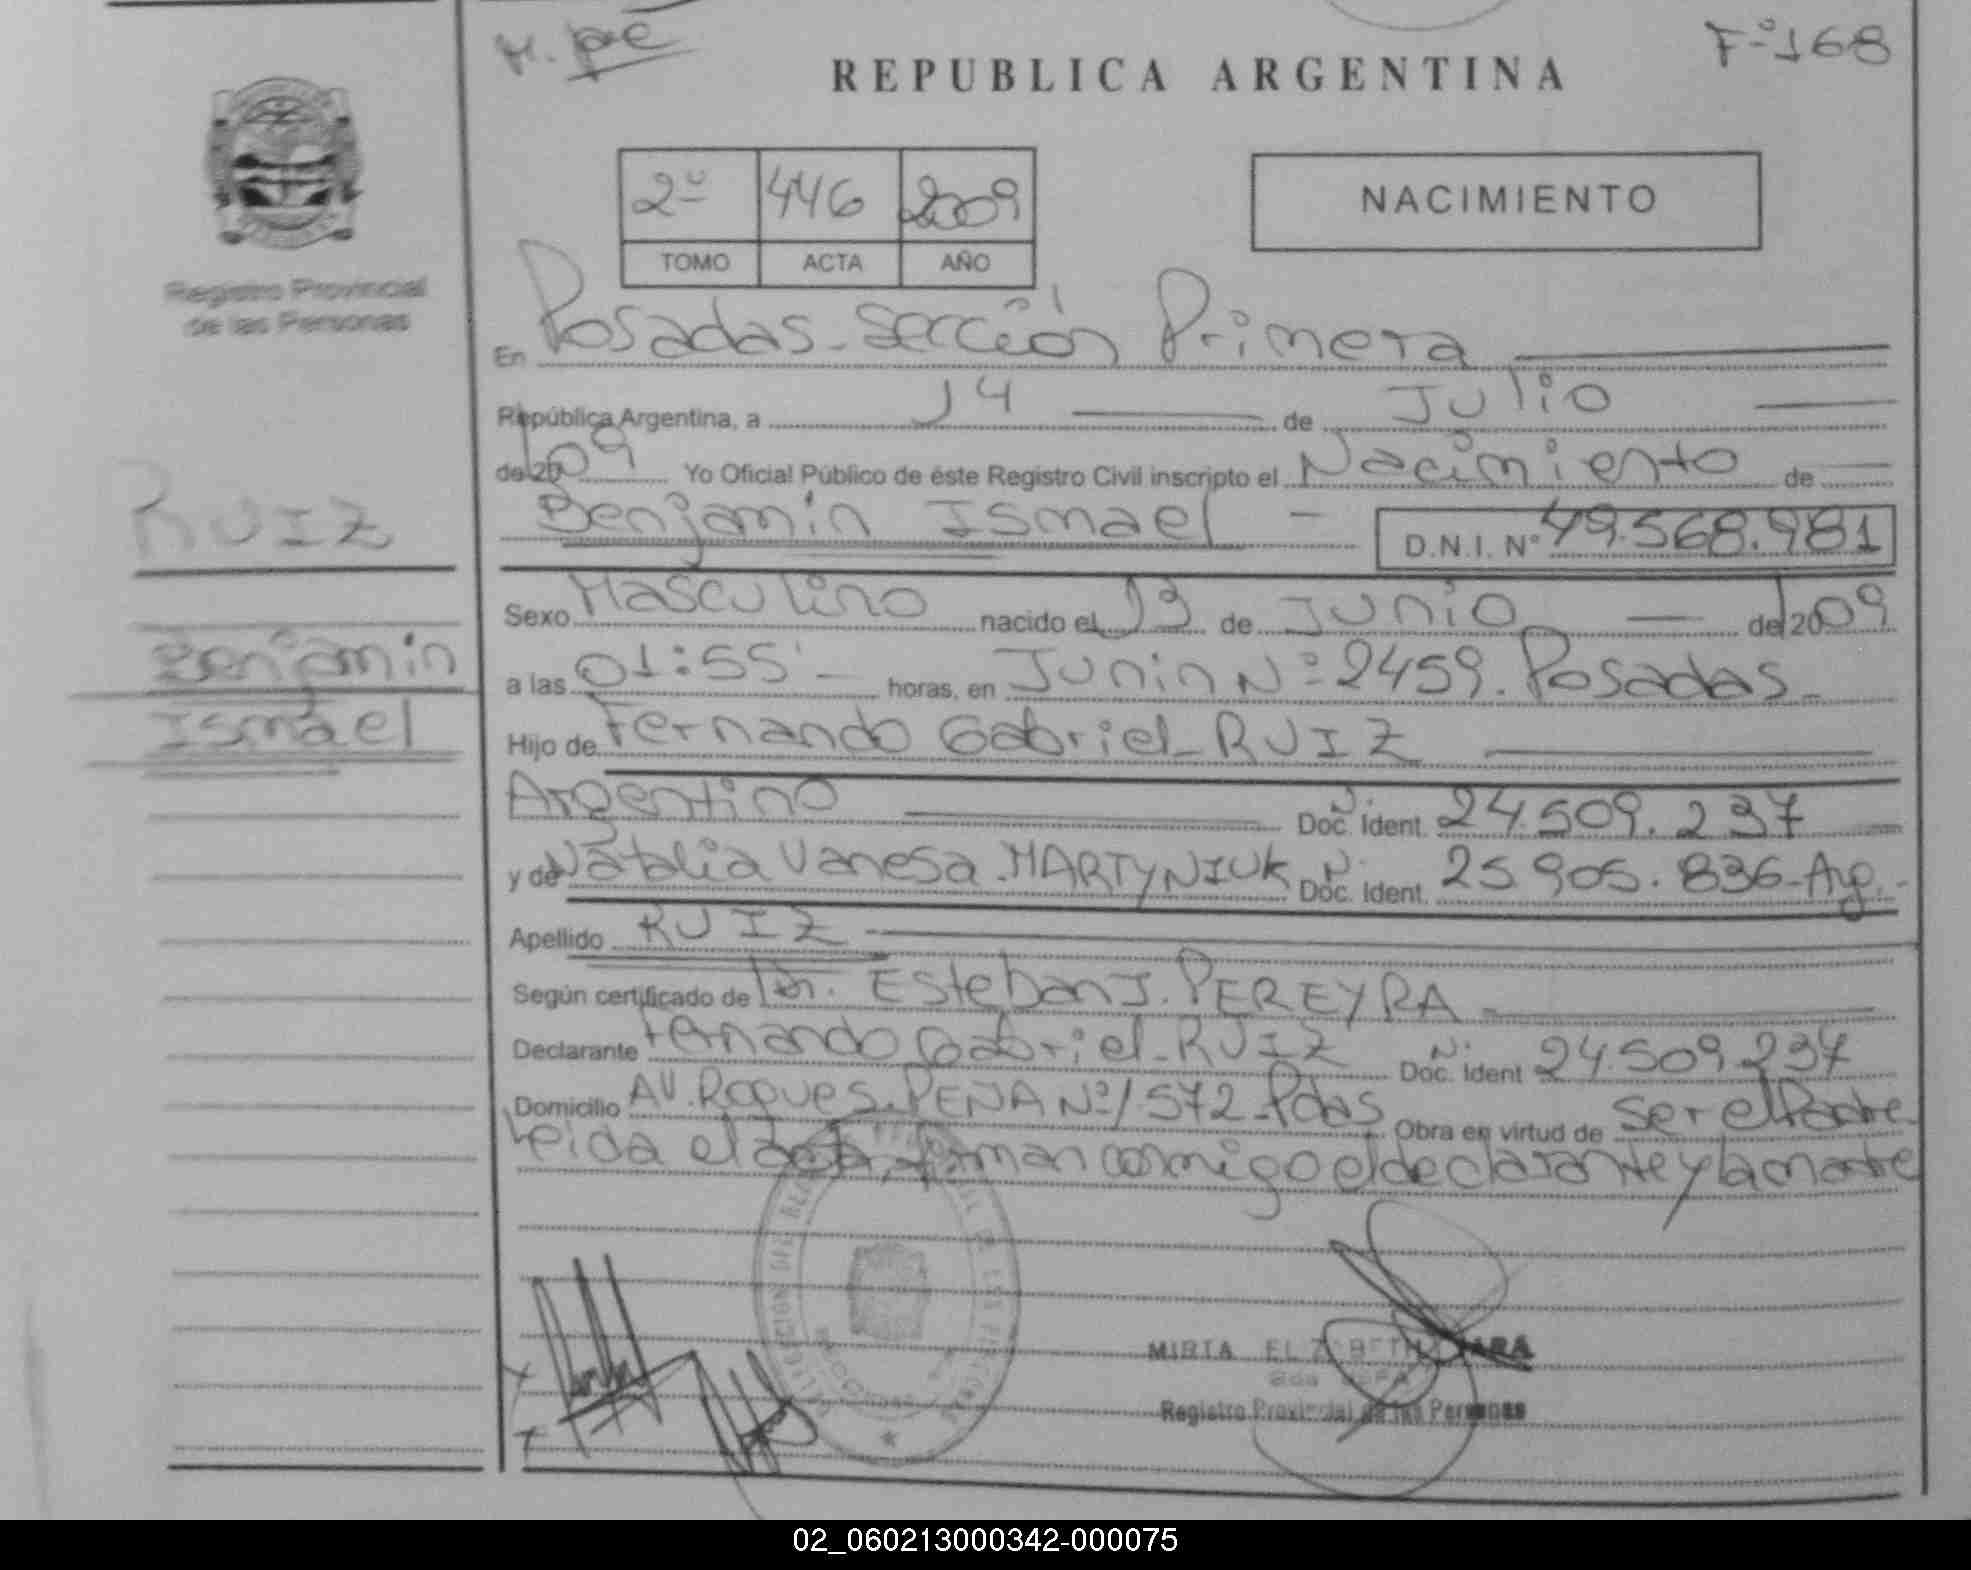 M. pe
F=º168
REPUBLICA ARGENTINA
2º 446 2009
TOMO ACTA AÑO
NACIMIENTO
Registro Provincial
de las Personas
En Posadas - Sección Primera
República Argentina, a 14 de Julio
de 2009 Yo Oficial Público de éste Registro Civil inscripto el Nacimiento de
Benjamin Ismael - D.N.I. Nº 49.568.981
RUIZ
Benjamin
Ismael
Sexo Masculino nacido el 13 de Junio de 2009
a las 01:55' - horas, en Junin Nº 2459. Posadas -
Hijo de Fernando Gabriel - RUIZ
Argentino N. Doc. Ident. 24.509.237
y de Natalia Vanesa MARTYNIUK N. Doc. Ident. 25.905.836 - Arg. -
Apellido RUIZ
Según certificado de Dr. Esteban J. PEREYRA
Declarante Fernando Gabriel - RUIZ N. Doc. Ident 24.509.237
Domicilio AV. Roques. PEÑA Nº 1572 - Pdas Obra en virtud de ser el Padre
Leida el acta, firman conmigo el declarante y la madre
MIRTA ELIZABETH
Registro Provincial de las Personas
02_060213000342-000075